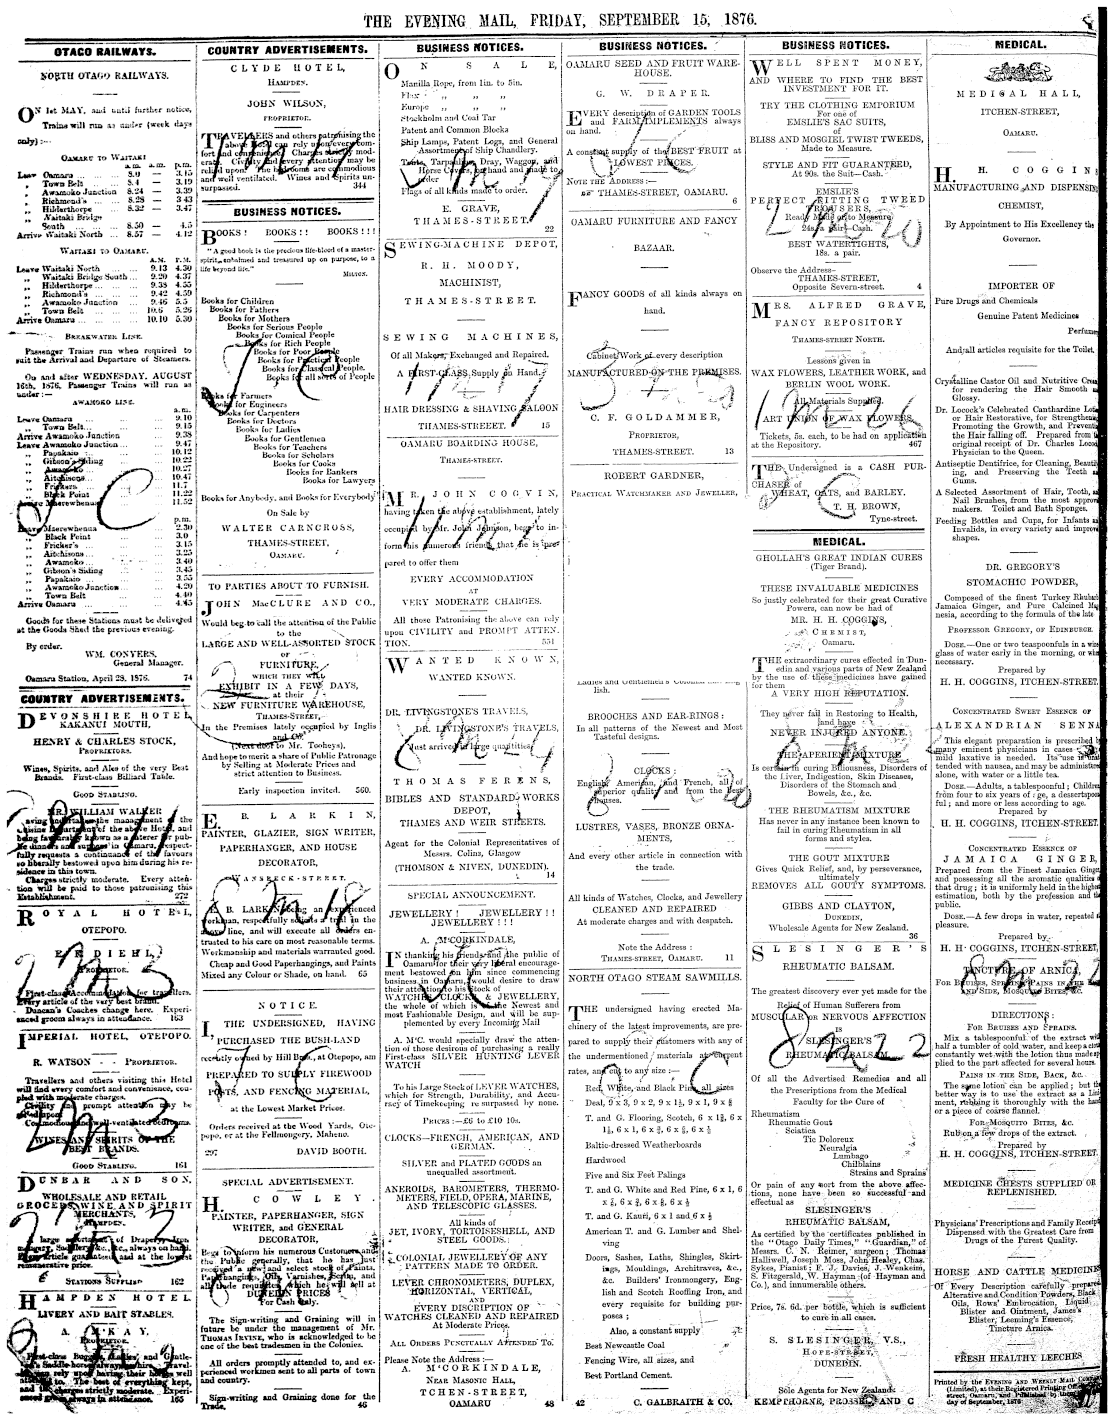 THE EVENING MAIL, FRIDAY, SEPTEMBER 15, 1876.
OTAGO RAILWAYS.
NORTH OTAGO RAILWAYS.
ON 1st MAY, and until further notice,
Trains will run as under (week days
only) :—
OAMARU TO WAITAKI
a.m. a.m. p.m.
Leave Oamaru 8.0 — 3.15
„ Town Belt 8.4 — 3.19
„ Awamoko Junction 8.24 — 3.39
„ Richmond's 8.28 — 3.43
„ Hilderthorpe 8.32 — 3.47
„ Waitaki Bridge
South 8.50 — 4.5
Arrive Waitaki North 8.57 — 4.12
WAITAKI TO OAMARU.
A.M. P.M.
Leave Waitaki North 9.13 4.30
„ Waitaki Bridge South 9.20 4.37
„ Hilderthorpe 9.38 4.55
„ Richmond's 9.42 4.59
„ Awamoko Junction 9.46 5.5
„ Town Belt 10.6 5.26
Arrive Oamaru 10.10 5.30
BREAKWATER LINE.
Passenger Trains run when required to
suit the Arrival and Departure of Steamers.
On and after WEDNESDAY, AUGUST
16th, 1876, Passenger Trains will run as
under :—
AWAMOKO LINE.
a.m.
Leave Oamaru 9.10
„ Town Belt 9.15
Arrive Awamoko Junction 9.38
Leave Awamoko Junction 9.47
„ Papakaio 10.12
„ Gibson's Siding 10.22
„ Awamoko 10.27
„ Aitchisons 10.47
„ Frickers 11.7
„ Black Point 11.22
Arrive Maerewhenua 11.52
p.m.
Leave Maerewhenua 2.30
„ Black Point 3.0
„ Fricker's 3.15
„ Aitchisons 3.25
„ Awamoko 3.40
„ Gibson's Siding 3.45
„ Papakaio 3.55
„ Awamoko Junction 4.20
„ Town Belt 4.40
Arrive Oamaru 4.45
Goods for these Stations must be delivered
at the Goods Shed the previous evening.
By order.
WM. CONYERS,
General Manager.
Oamaru Station, April 28, 1876. 74
COUNTRY ADVERTISEMENTS.
DEVONSHIRE HOTEL,
KAKANUI MOUTH,
HENRY & CHARLES STOCK,
PROPRIETORS.
Wines, Spirits, and Ales of the very Best
Brands. First-class Billiard Table.
GOOD STABLING.
MR. WILLIAM WALKER
Charges strictly moderate. Every atten-
tion will be paid to those patronising this
Establishment. 272
ROYAL HOTEL,
OTEPOPO.
E. R. DIEHL,
PROPRIETOR.
First-class Accommodation for travellers.
Every article of the very best brand.
Duncan's Coaches change here. Experi-
enced groom always in attendance. 163
IMPERIAL HOTEL, OTEPOPO.
R. WATSON — PROPRIETOR.
Travellers and others visiting this Hotel
will find every comfort and convenience, cou-
pled with moderate charges.
WINES AND SPIRITS OF THE
BEST BRANDS.
GOOD STABLING. 161
DUNBAR AND SON,
WHOLESALE AND RETAIL
GROCERS, WINE AND SPIRIT
MERCHANTS,
HAMPDEN.
STATIONS SUPPLIED 162
HAMPDEN HOTEL.
LIVERY AND BAIT STABLES.
A. McKAY,
PROPRIETOR.
165
COUNTRY ADVERTISEMENTS.
CLYDE HOTEL,
HAMPDEN.
JOHN WILSON,
PROPRIETOR.
TRAVELLERS and others patronising the
above Hotel can rely upon every com-
fort and convenience. Charges strictly mod-
erate. Civility and every attention may be
relied upon. The bedrooms are commodious
and well ventilated. Wines and Spirits un-
surpassed. 344
BUSINESS NOTICES.
BOOKS! BOOKS!! BOOKS!!!
"A good book is the precious life-blood of a master-
spirit, embalmed and treasured up on purpose, to a
life beyond life."
MILTON.
Books for Children
Books for Fathers
Books for Mothers
Books for Serious People
Books for Comical People
Books for Rich People
Books for Poor People
Books for Practical People
Books for Classical People
Books for all sorts of People
Books for Farmers
Books for Engineers
Books for Carpenters
Books for Doctors
Books for Ladies
Books for Gentlemen
Books for Teachers
Books for Scholars
Books for Cooks
Books for Bankers
Books for Lawyers
Books for Anybody, and Books for Everybody
On Sale by
WALTER CARNCROSS,
THAMES-STREET,
OAMARU.
TO PARTIES ABOUT TO FURNISH.
JOHN MacCLURE AND CO.,
Would beg to call the attention of the Public
to the
LARGE AND WELL-ASSORTED STOCK
OF
FURNITURE,
WHICH THEY WILL
EXHIBIT IN A FEW DAYS,
at their
NEW FURNITURE WAREHOUSE,
THAMES-STREET,
In the Premises lately occupied by Inglis
and Co.
(Next door to Mr. Tooheys).
And hope to merit a share of Public Patronage
by Selling at Moderate Prices and
strict attention to Business.
Early inspection invited. 560.
E. B. LARKIN,
PAINTER, GLAZIER, SIGN WRITER,
PAPERHANGER, AND HOUSE
DECORATOR,
WANSBECK-STREET.
E. B. LARKIN being an experienced
workman, respectfully solicits a trial in the
above line, and will execute all orders en-
trusted to his care on most reasonable terms.
Workmanship and materials warranted good.
Cheap and Good Paperhangings, and Paints
Mixed any Colour or Shade, on hand. 65
NOTICE.
I, THE UNDERSIGNED, HAVING
PURCHASED THE BUSH-LAND
recently owned by Hill Bros., at Otepopo, am
PREPARED TO SUPPLY FIREWOOD
POSTS, AND FENCING MATERIAL,
at the Lowest Market Prices.
Orders received at the Wood Yards, Ote-
popo, or at the Fellmongery, Maheno.
297 DAVID BOOTH.
SPECIAL ADVERTISEMENT.
H. COWLEY.
PAINTER, PAPERHANGER, SIGN
WRITER, and GENERAL
DECORATOR,
Begs to inform his numerous Customers and
the Public generally, that he has just
received a new and select stock of
Paperhangings, Oils, Varnishes,
DUNEDIN PRICES
For Cash Only.
The Sign-writing and Graining will in
future be under the management of Mr.
THOMAS IRVINE, who is acknowledged to be
one of the best tradesmen in the Colonies.
All orders promptly attended to, and ex-
perienced workmen sent to all parts of town
and country.
Sign-writing and Graining done for the
Trade. 46
BUSINESS NOTICES.
ON SALE,
Manilla Rope, from 1in. to 5in.
Flax „ „ „
Europe „ „ „
Stockholm and Coal Tar
Patent and Common Blocks
Ship Lamps, Patent Logs, and General
Assortment of Ship Chandlery.
Tents, Tarpaulins, Dray, Waggon, and
Horse Covers, on hand and made to
order
Flags of all kinds made to order.
E. GRAVE,
THAMES-STREET.
22
SEWING-MACHINE DEPOT,
R. H. MOODY,
MACHINIST,
THAMES-STREET.
SEWING MACHINES,
Of all Makers, Exchanged and Repaired.
A FIRST-CLASS Supply on Hand.
HAIR DRESSING & SHAVING SALOON
THAMES-STREEET. 15
OAMARU BOARDING HOUSE,
THAMES-STREET.
MR. JOHN COGVIN,
having taken the above establishment, lately
occupied by Mr. John Johnson, begs to in-
form his numerous friends that he is pre-
pared to offer them
EVERY ACCOMMODATION
AT
VERY MODERATE CHARGES.
All those Patronising the above can rely
upon CIVILITY and PROMPT ATTEN-
TION. 551
WANTED KNOWN,
WANTED KNOWN.
DR. LIVINGSTONE'S TRAVELS,
DR. LIVINGSTONE'S TRAVELS,
Just arrived in large quantities
THOMAS FERENS,
BIBLES AND STANDARD WORKS
DEPOT,
THAMES AND WEIR STREETS.
Agent for the Colonial Representatives of
Messrs. Colins, Glasgow
(THOMSON & NIVEN, DUNEDIN).
14
SPECIAL ANNOUNCEMENT.
JEWELLERY! JEWELLERY!!
JEWELLERY!!!
A. McCORKINDALE,
IN thanking his friends and the public of
Oamaru for their very liberal encourage-
ment bestowed on him since commencing
business in Oamaru, would desire to draw
their attention to his Stock of
WATCHES, CLOCKS & JEWELLERY,
the whole of which is of the Newest and
most Fashionable Design, and will be sup-
plemented by every Incoming Mail
A. McC. would specially draw the atten-
tion of those desirous of purchasing a really
First-class SILVER HUNTING LEVER
WATCH
To his Large Stock of LEVER WATCHES,
which for Strength, Durability, and Accu-
racy of Timekeeping are surpassed by none.
PRICES :—£6 to £10 10s.
CLOCKS—FRENCH, AMERICAN, AND
GERMAN.
SILVER and PLATED GOODS an
unequalled assortment.
ANEROIDS, BAROMETERS, THERMO-
METERS, FIELD, OPERA, MARINE,
AND TELESCOPIC GLASSES.
All kinds of
JET, IVORY, TORTOISESHELL, AND
STEEL GOODS.
COLONIAL JEWELLERY OF ANY
PATTERN MADE TO ORDER.
LEVER CHRONOMETERS, DUPLEX,
HORIZONTAL, VERTICAL,
AND
EVERY DISCRIPTION OF
WATCHES CLEANED AND REPAIRED
At Moderate Prices.
ALL ORDERS PUNCTUALLY ATTENDED TO.
Please Note the Address :—
A. McCORKINDALE,
NEAR MASONIC HALL,
TCHEN-STREET,
OAMARU 48
BUSINESS NOTICES.
OAMARU SEED AND FRUIT WARE-
HOUSE.
G. W. DRAPER.
EVERY description of GARDEN TOOLS
and FARM IMPLEMENTS always
on hand.
A constant supply of the BEST FRUIT at
LOWEST PRICES.
NOTE THE ADDRESS :—
THAMES-STREET, OAMARU.
6
OAMARU FURNITURE AND FANCY
BAZAAR.
FANCY GOODS of all kinds always on
hand.
Cabinet Work of every description
MANUFACTURED ON THE PREMISES.
C. F. GOLDAMMER,
PROPRIETOR,
THAMES-STREET. 13
ROBERT GARDNER,
PRACTICAL WATCHMAKER AND JEWELLER,
lish.
BROOCHES AND EAR-RINGS :
In all patterns of the Newest and Most
Tasteful designs.
CLOCKS :
English, American, and French, all of
superior quality and from the best
houses.
LUSTRES, VASES, BRONZE ORNA-
MENTS,
And every other article in connection with
the trade.
All kinds of Watches, Clocks, and Jewellery
CLEANED AND REPAIRED
At moderate charges and with despatch.
Note the Address :
THAMES-STREET, OAMARU. 11
NORTH OTAGO STEAM SAWMILLS.
THE undersigned having erected Ma-
chinery of the latest improvements, are pre-
pared to supply their customers with any of
the undermentioned materials at current
rates, and cut to any size :—
Red, White, and Black Pine, all sizes
Deal, 9 x 3, 9 x 2, 9 x 1½, 9 x 1, 9 x ½
T. and G. Flooring, Scotch, 6 x 1⅜, 6 x
Baltic-dressed Weatherboards
Hardwood
Five and Six Feet Palings
T. and G. White and Red Pine, 6 x 1, 6
T. and G. Kauri, 6 x 1 and 6 x ½
American T. and G. Lumber and Shel-
ving
Doors, Sashes, Laths, Shingles, Skirt-
ings, Mouldings, Architraves, &c.,
&c. Builders' Ironmongery, Eng-
lish and Scotch Roofling Iron, and
every requisite for building pur-
poses ;
Also, a constant supply
Best Newcastle Coal
Fencing Wire, all sizes, and
Best Portland Cement.
42 C. GALBRAITH & CO.
BUSINESS NOTICES.
WELL SPENT MONEY,
AND WHERE TO FIND THE BEST
INVESTMENT FOR IT.
TRY THE CLOTHING EMPORIUM
For one of
EMSLIE'S SAC SUITS,
OF
BLISS AND MOSGIEL TWIST TWEEDS,
Made to Measure.
STYLE AND FIT GUARANTEED,
At 90s. the Suit—Cash.
EMSLIE'S
PERFECT FITTING TWEED
TROUSERS,
Ready Made or to Measure
24s. a pair—Cash.
BEST WATERTIGHTS,
18s. a pair.
Observe the Address—
THAMES-STREET,
Opposite Severn-street. 4
MRS. ALFRED GRAVE,
FANCY REPOSITORY
THAMES-STREET NORTH.
Lessons given in
WAX FLOWERS, LEATHER WORK, and
BERLIN WOOL WORK.
All Materials Supplied.
ART UNION OF WAX FLOWERS,
Tickets, 5s. each, to be had on application
at the Repository. 467
THE Undersigned is a CASH PUR-
CHASER of
WHEAT, OATS, and BARLEY.
T. H. BROWN,
Tyne-street.
MEDICAL.
GHOLLAH'S GREAT INDIAN CURES
(Tiger Brand).
THESE INVALUABLE MEDICINES
So justly celebrated for their great Curative
Powers, can now be had of
MR. H. H. COGGINS,
CHEMIST,
Oamaru.
THE extraordinary cures effected in Dun-
edin and various parts of New Zealand
by the use of these medicines have gained
for them
A VERY HIGH REPUTATION.
They never fail in Restoring to Health,
and have
NEVER INJURED ANYONE.
THE APERIENT MIXTURE
Is certain of curing Biliousness, Disorders of
the Liver, Indigestion, Skin Diseases,
Disorders of the Stomach and
Bowels, &c., &c.
THE RHEUMATISM MIXTURE
Has never in any instance been known to
fail in curing Rheumatism in all
forms and styles.
THE GOUT MIXTURE
Gives Quick Relief, and, by perseverance,
ultimately
REMOVES ALL GOUTY SYMPTOMS.
GIBBS AND CLAYTON,
DUNEDIN,
Wholesale Agents for New Zealand.
36
SLESINGER'S
RHEUMATIC BALSAM.
The greatest discovery ever yet made for the
Relief of Human Sufferers from
MUSCULAR or NERVOUS AFFECTION
IS
SLESINGER'S
RHEUMATIC BALSAM.
Of all the Advertised Remedies and all
the Prescriptions from the Medical
Faculty for the Cure of
Rheumatism
Rheumatic Gout
Sciatica
Tic Doloreux
Neuralgia
Lumbago
Chilblains
Strains and Sprains
Or pain of any sort from the above affec-
tions, none have been so successful and
effectual as
SLESINGER'S
RHEUMATIC BALSAM,
As certified by the certificates published in
the "Otago Daily Times," "Guardian," of
Messrs. C. N. Reimer, surgeon ; Thomas
Halliwell, Joseph Moss, John Healey, Chas.
Sykes, Pianist ; E. J. Davies, J. Weskeim,
S. Fitzgerald, W. Hayman (of Hayman and
Co.), and innumerable others.
Price, 7s. 6d. per bottle, which is sufficient
to cure in all cases.
S. SLESINGER, V.S.,
HOPE-STREET,
DUNEDIN.
Sole Agents for New Zealand:
KEMPTHORNE, PROSSER, AND C
MEDICAL.
MEDICAL HALL,
ITCHEN-STREET,
OAMARU.
H. H. COGGINS
MANUFACTURING AND DISPENSIN
CHEMIST,
By Appointment to His Excellency the
Governor.
IMPORTER OF
Pure Drugs and Chemicals
Genuine Patent Medicines
Perfume
And all articles requisite for the Toilet.
Crystalline Castor Oil and Nutritive Crea
for rendering the Hair Smooth
Glossy.
Dr. Locock's Celebrated Canthardine Lot
or Hair Restorative, for Strengthen
Promoting the Growth, and Prevent
the Hair falling off. Prepared from t
original receipt of Dr. Charles Locoo
Physician to the Queen.
Antiseptic Dentifrice, for Cleaning, Beauti
ing, and Preserving the Teeth a
Gums.
A Selected Assortment of Hair, Tooth, a
Nail Brushes, from the most approv
makers. Toilet and Bath Sponges.
Feeding Bottles and Cups, for Infants a
Invalids, in every variety and improve
shapes.
DR. GREGORY'S
STOMACHIC POWDER,
Composed of the finest Turkey Rhubar
Jamaica Ginger, and Pure Calcined Ma
nesia, according to the formula of the late
PROFESSOR GREGORY, OF EDINBURGH.
DOSE.—One or two teaspoonfuls in a wine
glass of water early in the morning, or whe
necessary.
Prepared by
H. H. COGGINS, ITCHEN-STREET.
CONCENTRATED SWEET ESSENCE OF
ALEXANDRIAN SENNA
This elegant preparation is prescribed b
many eminent physicians in cases
mild laxative is needed. Its use is
tended with nausea, and may be administere
alone, with water or a little tea.
DOSE.—Adults, a tablespoonful ; Children
from four to six years of age, a dessertspoo
ful ; and more or less according to age.
Prepared by
H. H. COGGINS, ITCHEN-STREET.
CONCENTRATED ESSENCE OF
JAMAICA GINGER,
Prepared from the Finest Jamaica Ginger,
and possessing all the aromatic qualities o
that drug ; it is uniformly held in the highest
estimation, both by the profession and the
public.
DOSE.—A few drops in water, repeated a
pleasure.
Prepared by
H. H. COGGINS, ITCHEN-STREET.
TINCTURE OF ARNICA,
FOR BRUISES, SPRAINS, PAINS IN THE
AND SIDE, MOSQUITO BITES, &C.
DIRECTIONS :
FOR BRUISES AND SPRAINS.
Mix a tablespoonful of the extract with
half a tumbler of cold water, and keep a
constantly wet with the lotion thus made
plied to the part affected for several hours.
PAINS IN THE SIDE, BACK, &C.
The same lotion can be applied ; but the
better way is to use the extract as a Lini-
ment, rubbing it thoroughly with the hand
or a piece of coarse flannel.
FOR MOSQUITO BITES, &C.
Rub on a few drops of the extract.
Prepared by
H. H. COGGINS, ITCHEN-STREET.
MEDICINE CHESTS SUPPLIED OR
REPLENISHED.
Physicians' Prescriptions and Family Receipts
Dispensed with the Greatest Care from
Drugs of the Purest Quality.
HORSE AND CATTLE MEDICINE
Of Every Description carefully prepared
Alterative and Condition Powders, Black
Oils, Rows' Embrocation, Liquid
Blister and Ointment, James's
Blister, Leeming's Essence,
Tincture Arnica.
FRESH HEALTHY LEECHES
Printed by the EVENING AND WEEKLY MAIL COMP
(Limited), at their Registered Printing Office
street, Oamaru, and Published by them
day of September, 1876